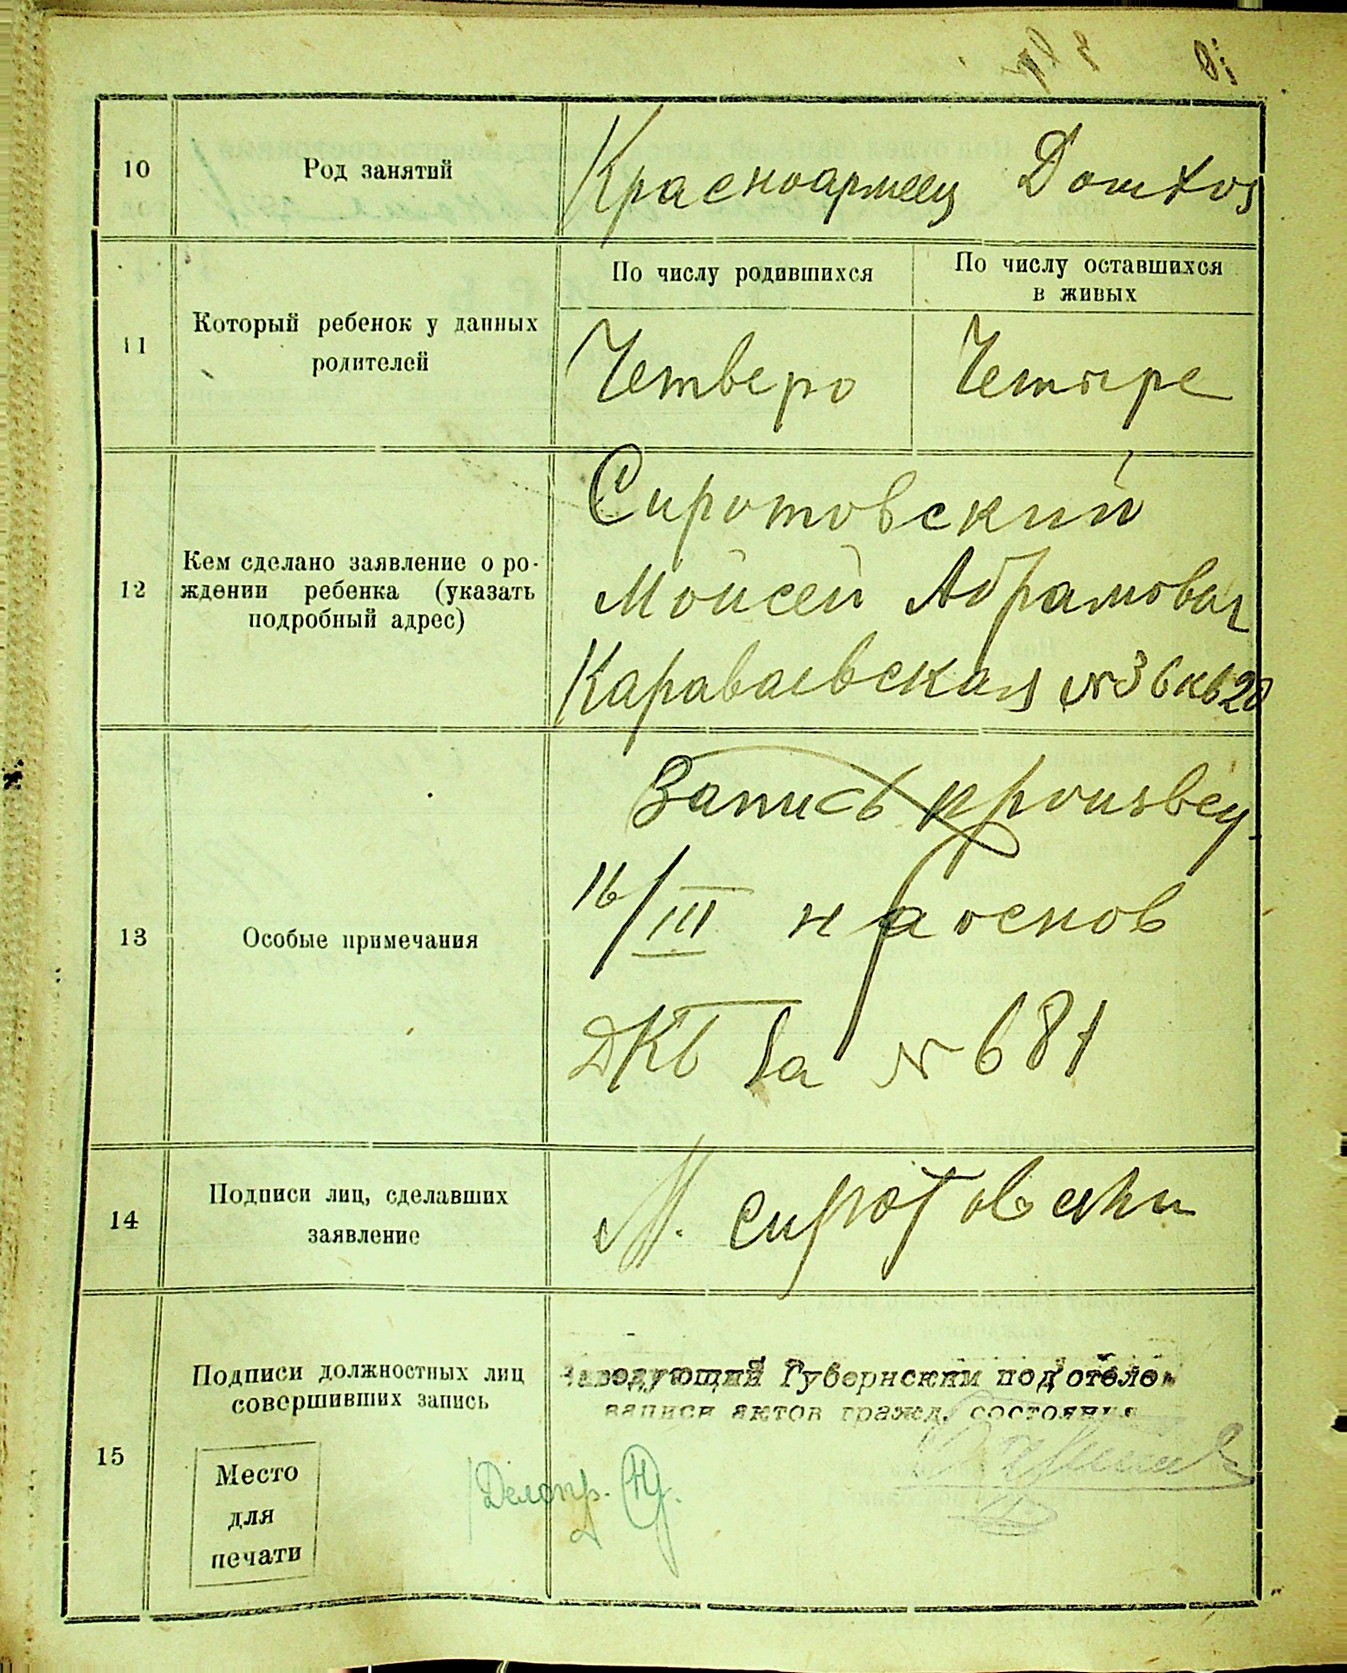 10
Род занятий
Красноармеец Домхоз
11
Который ребенок у данных
родителей
По числу родившихся
По числу оставшихся
в живых
Четверо
Четыре
12
Кем сделано заявление о ро-
ждении ребенка (указать
подробный адрес)
Сиротовский
Мойсей Абрамович
Караваевская №36 кв 20
13
Особые примечания
Запись произвед.
16/III на основ
№ 681
14
Подписи лиц, сделавших
заявление
М. Сиротовски
15
Подписи должностных лиц
совершивших запись
Место
для
печати
Заведующий Губернским подотделом
записи актов гражд. состояния
Делопр.